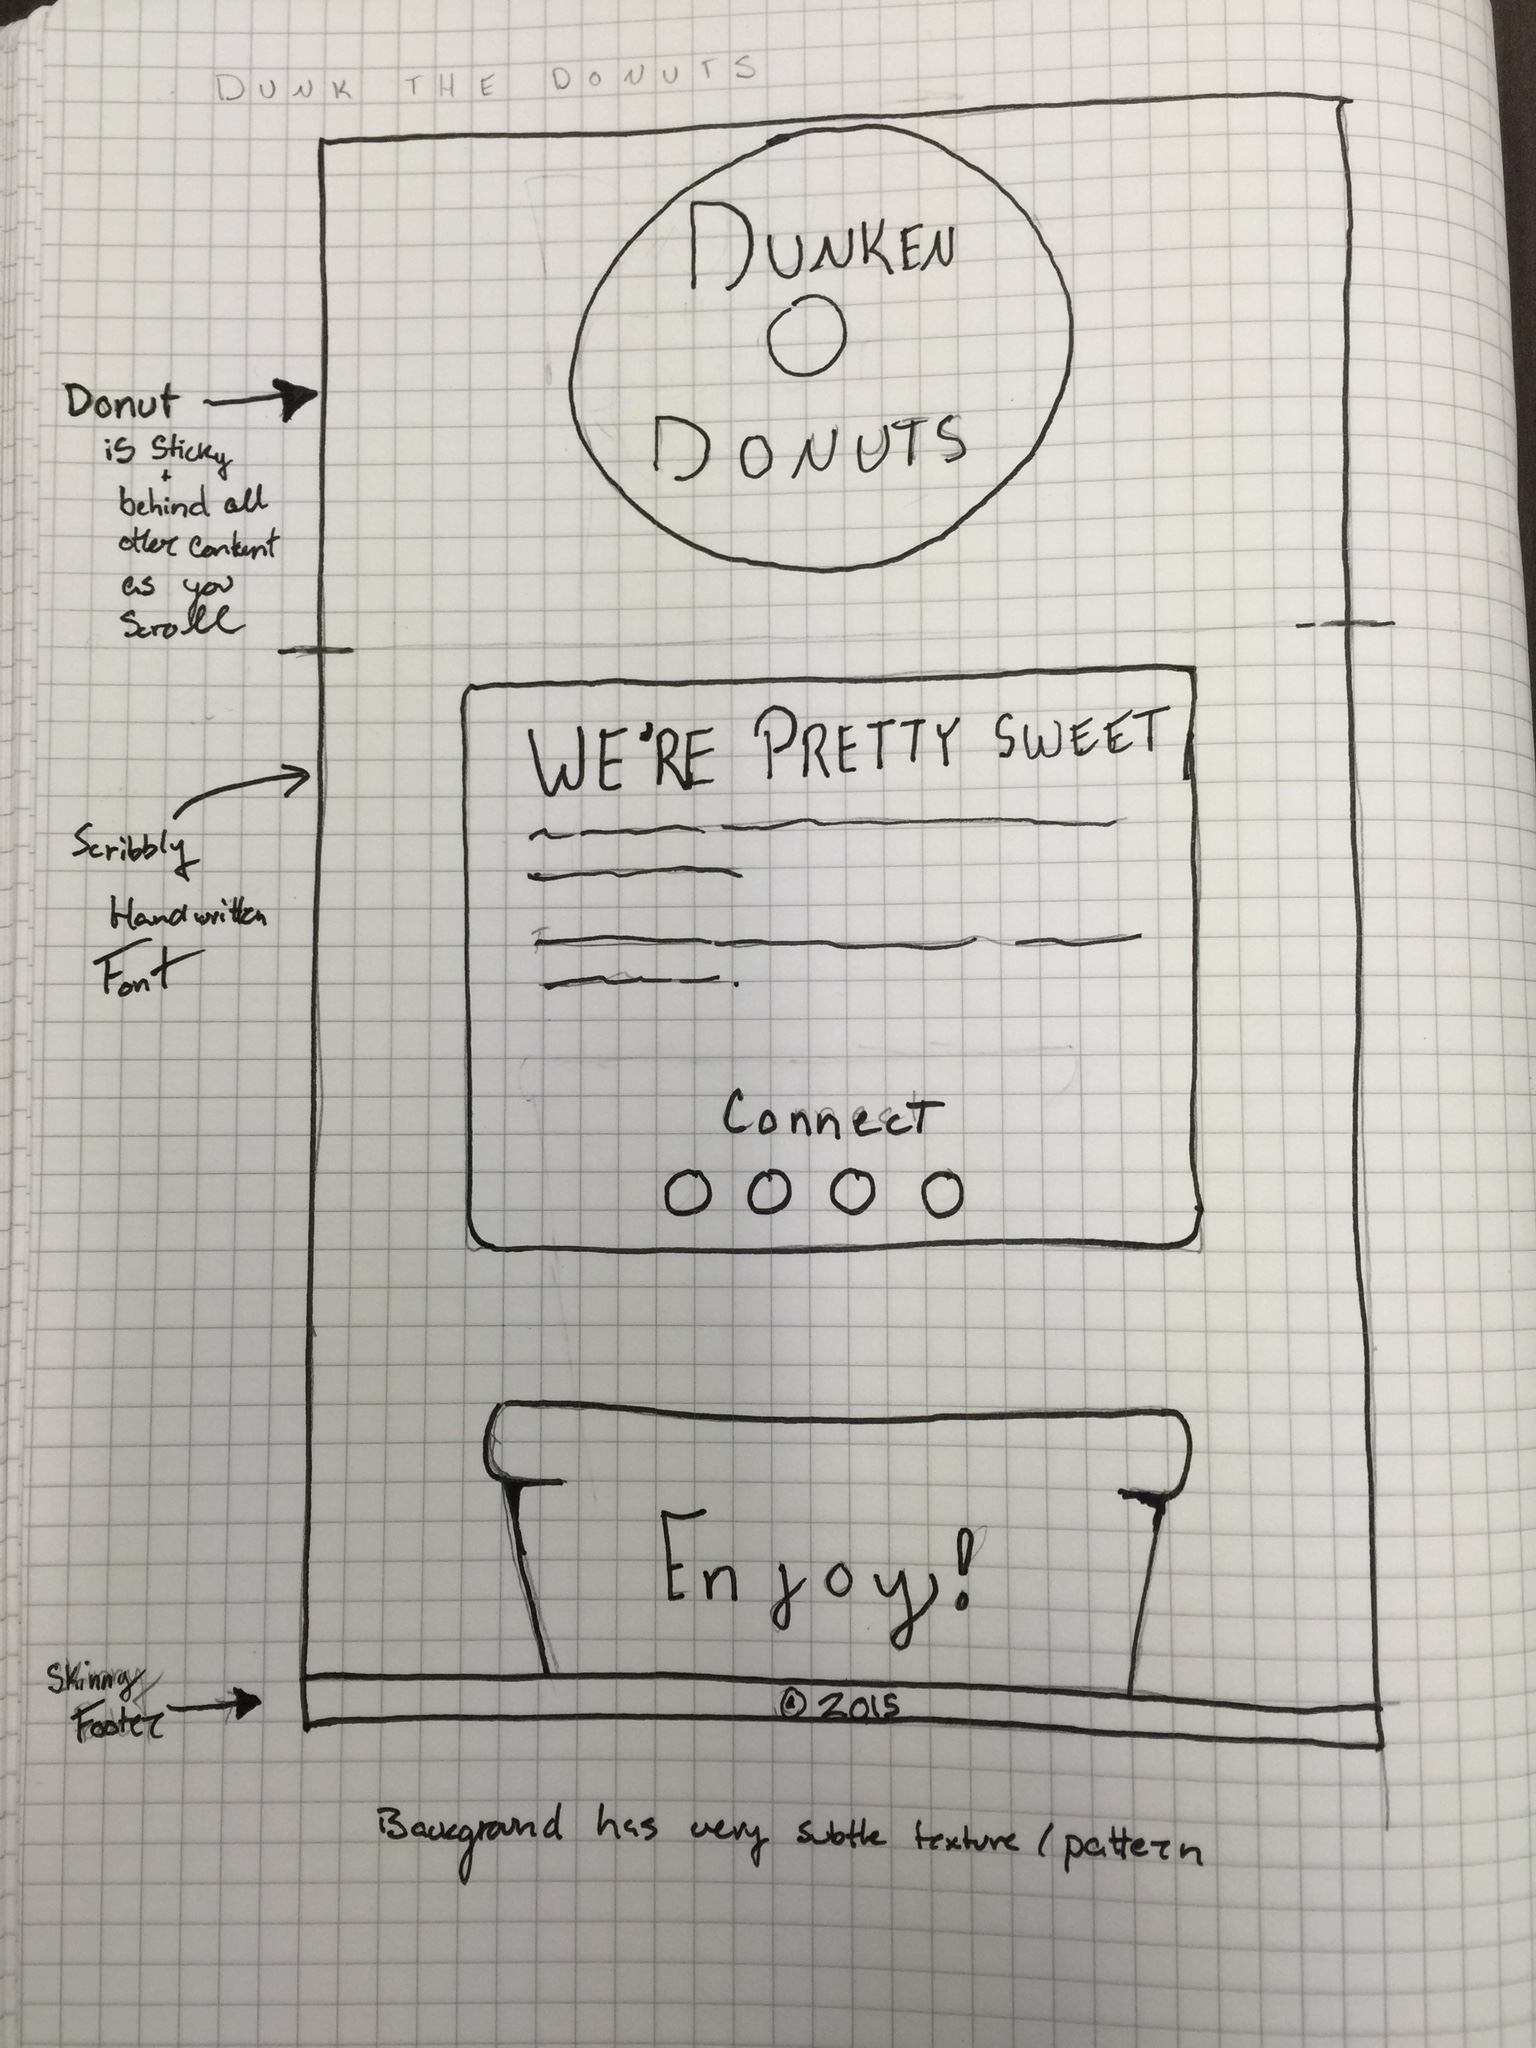 DUNK THE DONUTS
DUNKEN
DONUTS
Donut
is Sticky
+
behind all
other content
as you
Scroll
WE'RE PRETTY SWEET
Scribbly
Handwritten
Font
Connect
Enjoy!
Skinny
Footer
© 2015
Background has very subtle texture / pattern